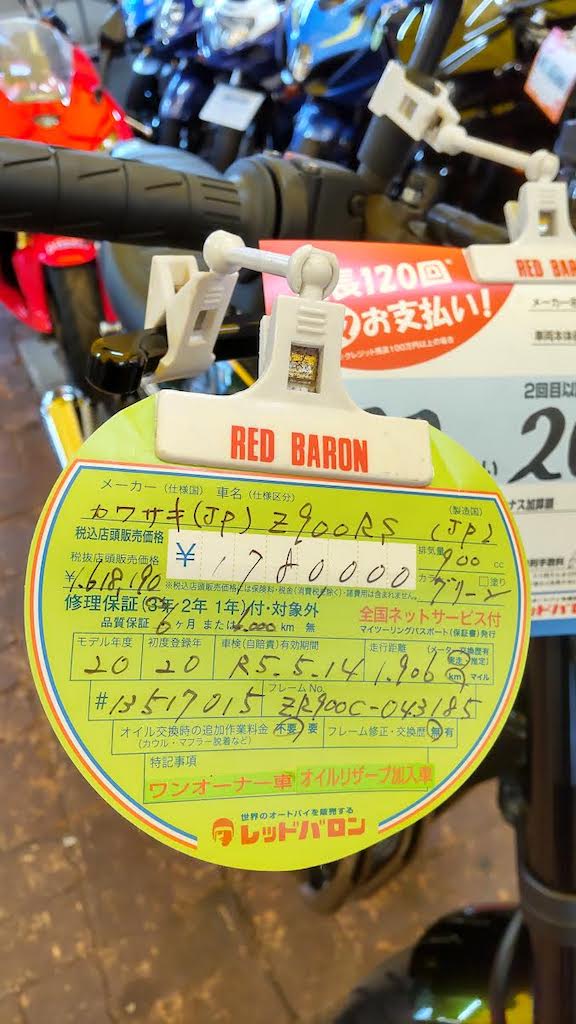 長120回
お支払い!
クレジット残高100万円以上の場合
RED BARON
メーカー
車両本体
2回目以
い
20
ナス加算額
RED BARON
メーカー(仕様国) 車名(仕様区分) (製造国)
カワサキ(JP) Z900RS (JP)
税込店頭販売価格 ¥1780000 排気量 900 cc
税抜店頭販売価格 ¥1.618.190 カラー グリーン □塗り
※税込店頭販売価格には保険料・税金(消費税除く)・諸費用は含まれません。
修理保証(3年 2年 1年)付・対象外 全国ネットサービス付
品質保証 6ヶ月 または6.000km 無 マイツーリングパスポート(保証書)発行
モデル年度 初度登録年 車検(自賠責)有効期間 走行距離 (メーター交換歴有 実走 推定)
20 20 R5.5.14 1.9068 km マイル
#13517015 フレームNo. ZR900C-043185
オイル交換時の追加作業料金 不要 要 フレーム修正・交換歴 無 有
(カウル・マフラー脱着など)
特記事項
ワンオーナー車 オイルリザーブ加入車
世界のオートバイを販売する
レッドバロン